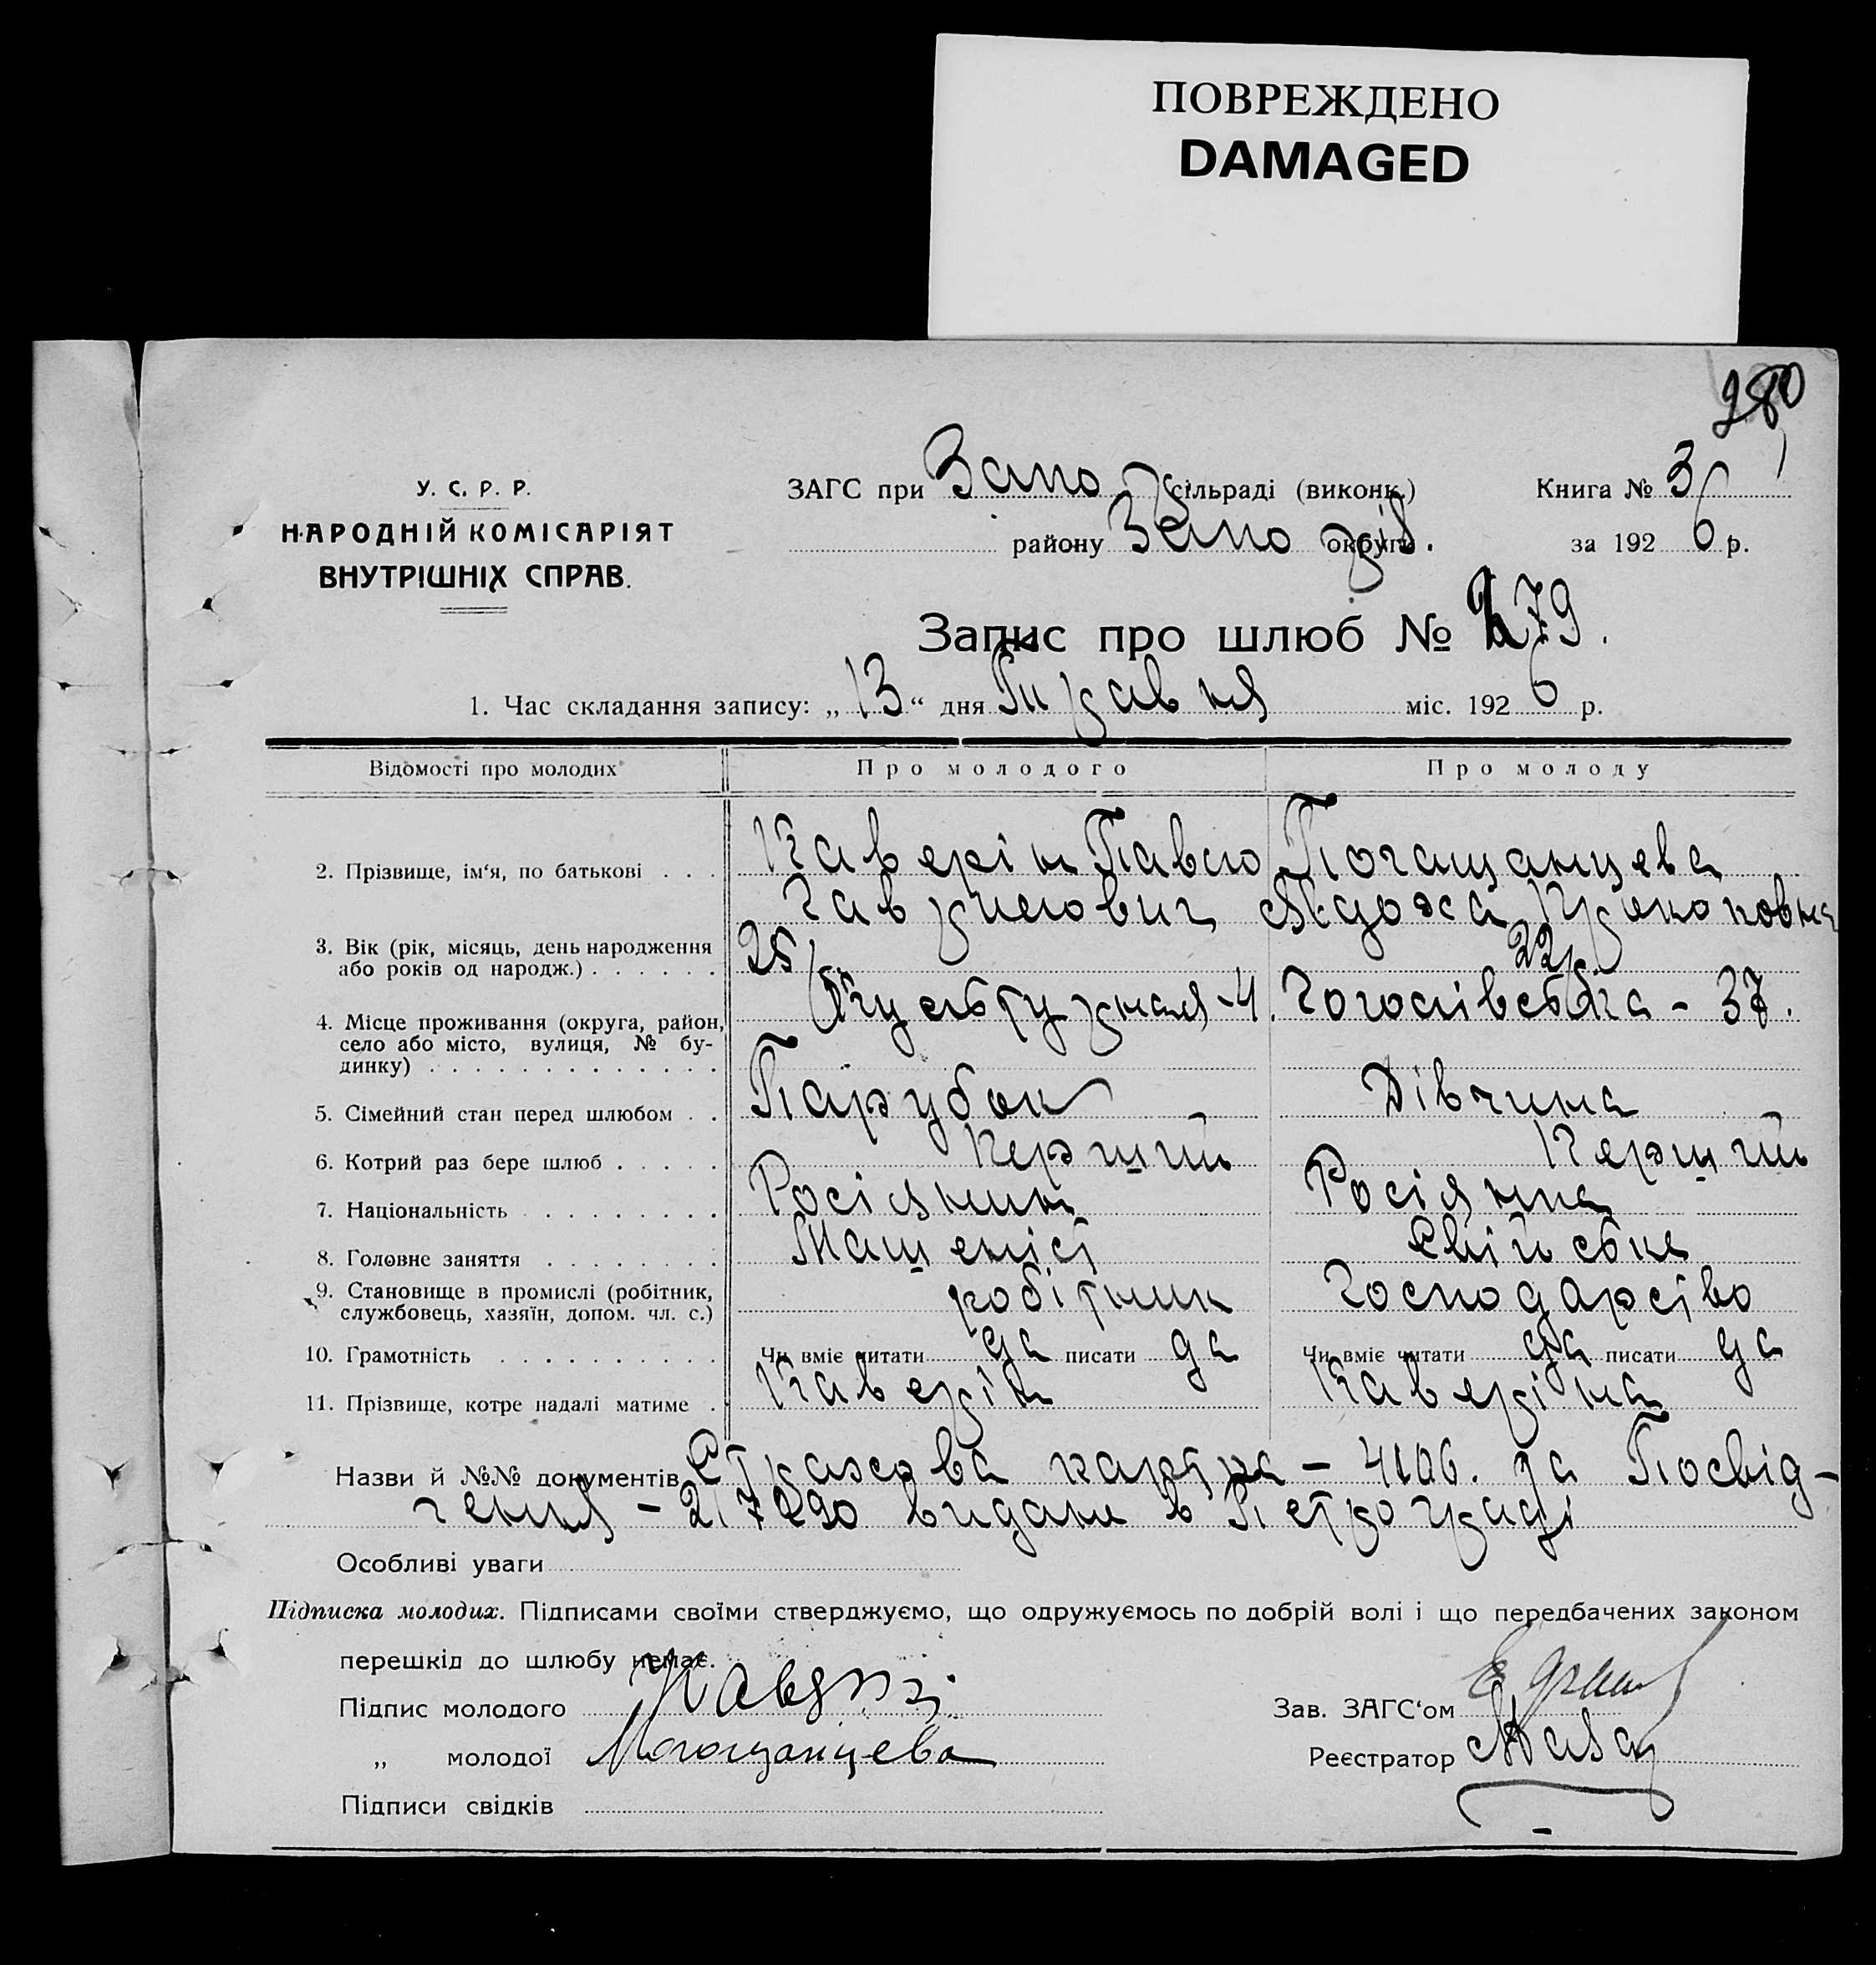 ПОВРЕЖДЕНО
DAMAGED
280
У. С. Р. Р.
НАРОДНІЙ КОМІСАРІЯТ
ВНУТРІШНІХ СПРАВ.
ЗАГС при Запо сільраді (виконк.) Книга № 3
району Запо округи за 1926 р.
Запис про шлюб № 279.
1. Час складання запису: „13“ дня Травня міс. 1926 р.
Відомості про молодих Про молодого Про молоду
2. Прізвище, ім‘я, по батькові . . . Каверін Павло
Гаврилович
3. Вік (рік, місяць, день народження або років од народж.) . . . . . . 25 22
4. Місце проживання (округа, район, село або місто, вулиця, № будинку) . . . . . . . . . . . . . Культурная-4. Гоголівська - 37.
5. Сімейний стан перед шлюбом . . Парубок Дівчина
6. Котрий раз бере шлюб . . . . . Перший Перший
7. Національність . . . . . . . . . Росіянин Росіянка
8. Головне заняття . . . . . . . . Машеніст Свійське
9. Становище в промислі (робітник, службовець, хазяїн, допом. чл. с.) робітник Господарство
10. Грамотність . . . . . . . . . . Чи вміє читати да писати да Чи вміє читати да писати да
11. Прізвище, котре надалі матиме . Каверін Каверіна
Назви й №№ документів Страхова картка - 4106. та Посвід-
чення - 217290 видане в Петрограді
Особливі уваги
Підписка молодих. Підписами своїми стверджуємо, що одружуємось по добрій волі і що передбачених законом
перешкід до шлюбу немає.
Підпис молодого
Зав. ЗАГС‘ом
„ молодої
Реєстратор
Підписи свідків